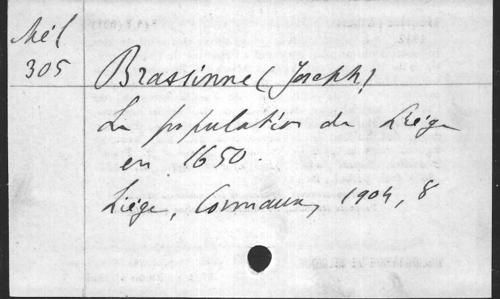 Mél
305
Brassinne (Joseph)
La population de Liége
en 1650.
Liége, Cormaux, 1904, 8